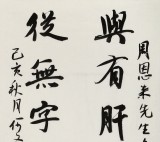 周恩来先生
與有肝
從無字
己亥秋月何